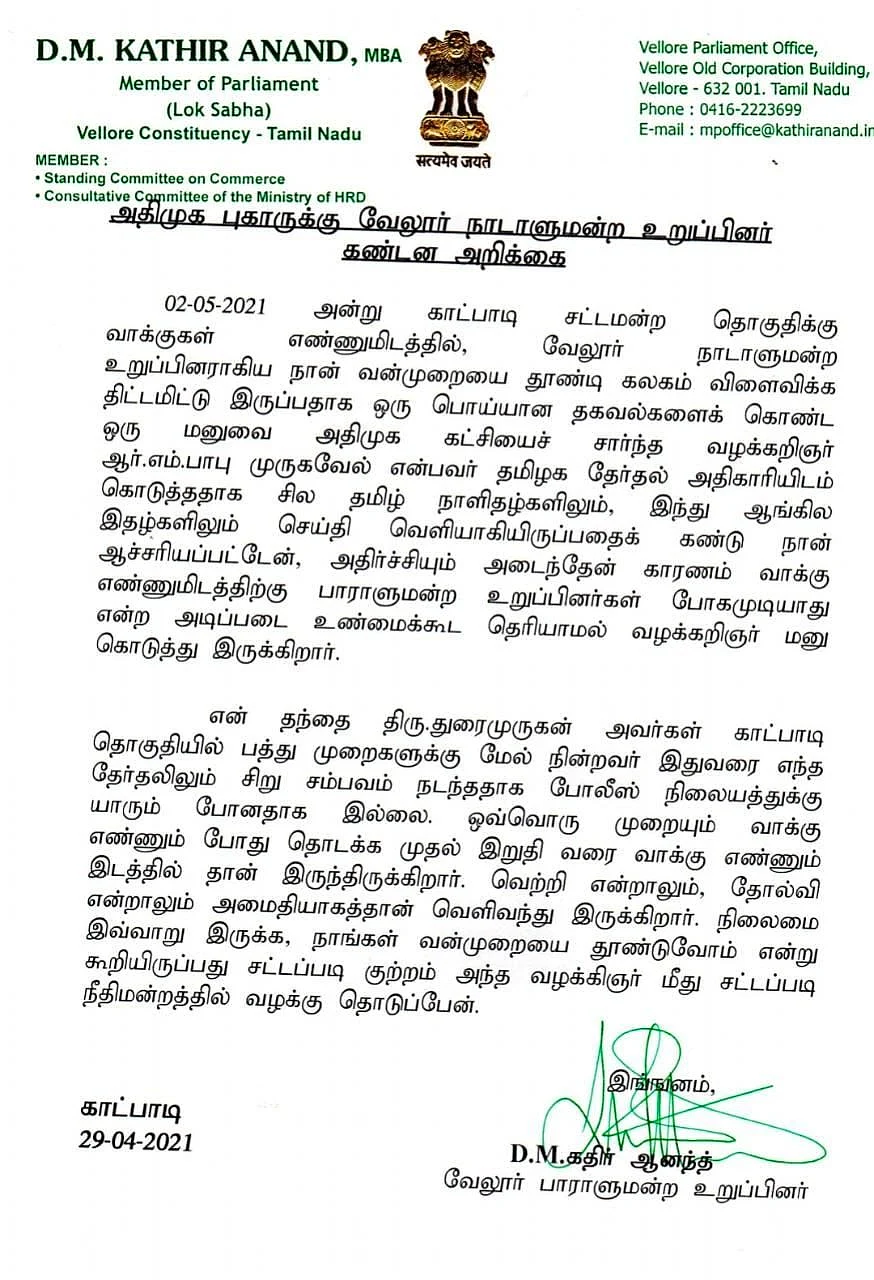 D.M. KATHIR ANAND, MBA
Member of Parliament
(Lok Sabha)
Vellore Constituency - Tamil Nadu
MEMBER :
• Standing Committee on Commerce
• Consultative Committee of the Ministry of HRD
सत्यमेव जयते
Vellore Parliament Office,
Vellore Old Corporation Building,
Vellore - 632 001. Tamil Nadu
Phone : 0416-2223699
E-mail : mpoffice@kathiranand.in
அதிமுக புகாருக்கு வேலூர் நாடாளுமன்ற உறுப்பினர்
கண்டன அறிக்கை
02-05-2021 அன்று காட்பாடி சட்டமன்ற தொகுதிக்கு
வாக்குகள் எண்ணுமிடத்தில், வேலூர் நாடாளுமன்ற
உறுப்பினராகிய நான் வன்முறையை தூண்டி கலகம் விளைவிக்க
திட்டமிட்டு இருப்பதாக ஒரு பொய்யான தகவல்களைக் கொண்ட
ஒரு மனுவை அதிமுக கட்சியைச் சார்ந்த வழக்கறிஞர்
ஆர்.எம்.பாபு முருகவேல் என்பவர் தமிழக தேர்தல் அதிகாரியிடம்
கொடுத்ததாக சில தமிழ் நாளிதழ்களிலும், இந்து ஆங்கில
இதழ்களிலும் செய்தி வெளியாகியிருப்பதைக் கண்டு நான்
ஆச்சரியப்பட்டேன், அதிர்ச்சியும் அடைந்தேன் காரணம் வாக்கு
எண்ணுமிடத்திற்கு பாராளுமன்ற உறுப்பினர்கள் போகமுடியாது
என்ற அடிப்படை உண்மைக்கூட தெரியாமல் வழக்கறிஞர் மனு
கொடுத்து இருக்கிறார்.
என் தந்தை திரு.துரைமுருகன் அவர்கள் காட்பாடி
தொகுதியில் பத்து முறைகளுக்கு மேல் நின்றவர் இதுவரை எந்த
தேர்தலிலும் சிறு சம்பவம் நடந்ததாக போலீஸ் நிலையத்துக்கு
யாரும் போனதாக இல்லை. ஒவ்வொரு முறையும் வாக்கு
எண்ணும் போது தொடக்க முதல் இறுதி வரை வாக்கு எண்ணும்
இடத்தில் தான் இருந்திருக்கிறார். வெற்றி என்றாலும், தோல்வி
என்றாலும் அமைதியாகத்தான் வெளிவந்து இருக்கிறார். நிலைமை
இவ்வாறு இருக்க, நாங்கள் வன்முறையை தூண்டுவோம் என்று
கூறியிருப்பது சட்டப்படி குற்றம் அந்த வழக்கிஞர் மீது சட்டப்படி
நீதிமன்றத்தில் வழக்கு தொடுப்பேன்.
இங்ஙனம்,
காட்பாடி
29-04-2021
D.M.கதிர் ஆனந்த்
வேலூர் பாராளுமன்ற உறுப்பினர்